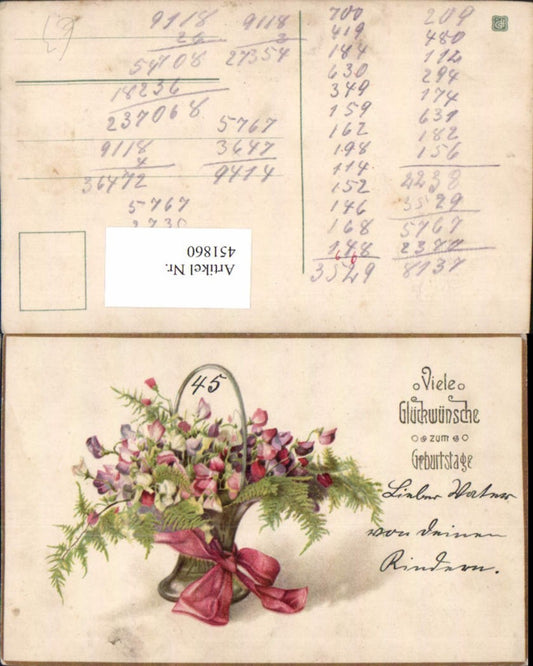 9118
26
54708
18236
237068
9118
3
27354
9118
4
36472
5767
3647
9414
5767
2730
700
419
184
630
349
159
162
198
114
152
146
168
148
3529
209
480
112
294
174
631
182
156
2238
3529
5767
2377
8137
Artikel Nr.
451860
45
Viele
Glückwünsche
zum
Geburtstage
Lieber Vater
von deinen
Kindern.